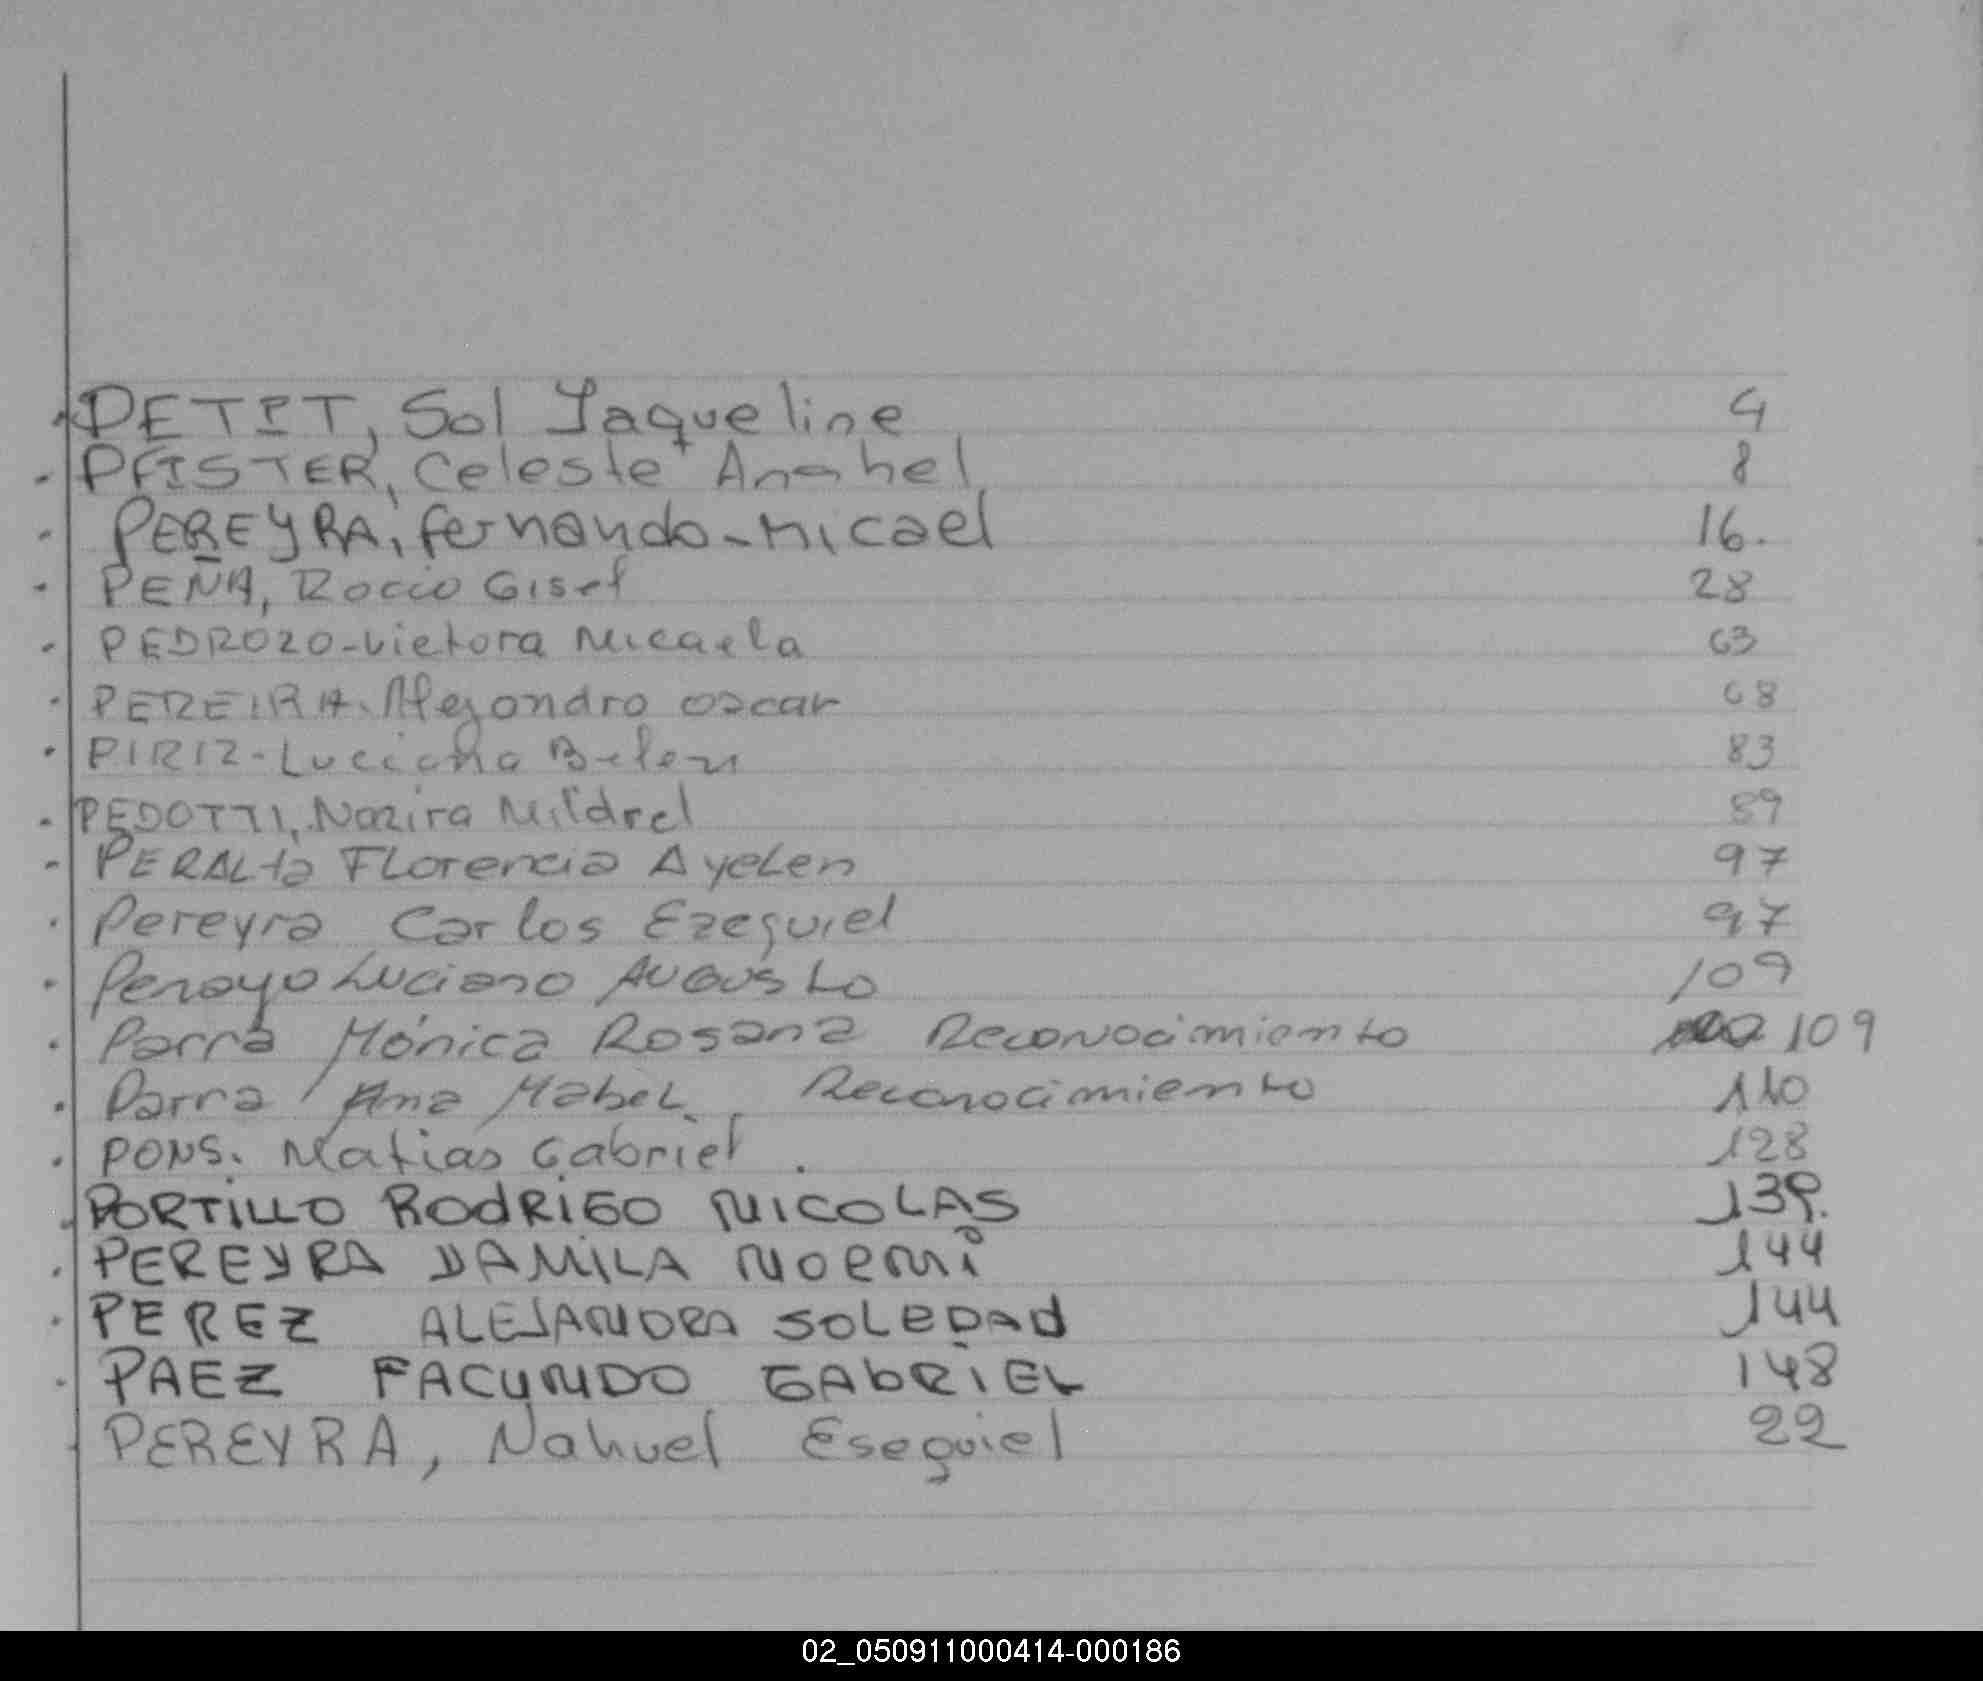 PETIT, Sol Jaqueline 4
- PFISTER, Celeste Anahel 8
- PEREYRA, fernando-Micael 16.
- PEÑA, Rocio Gisel 28
- PEDROZO-Victora Micaela 63
- PEREIRA. Alejandro oscar 68
- PIRIZ-Luciana Belen 83
- PEDOTTI, Nazira Mildrel 89
- PERALta FLorencia AyeLen 97
- Pereyra Carlos Ezequiel 97
- Penayo Luciano AUGUSto 109
- Parra Mónica Rosana Reconocimiento 109
- Parra Ana MabeL. Reconocimiento 110
- PONS. Matias Gabriel. 128
- PORTiLLO RodRiGO NICOLAS 139.
- PEREYRA YAMiLA NOEMI 144
- PEREZ ALEJANDRA SOLEDAd 144
- PAEZ FACUNDO GAbRiEL 148
- PEREYRA, Nahuel Esequiel 22
02_050911000414-000186